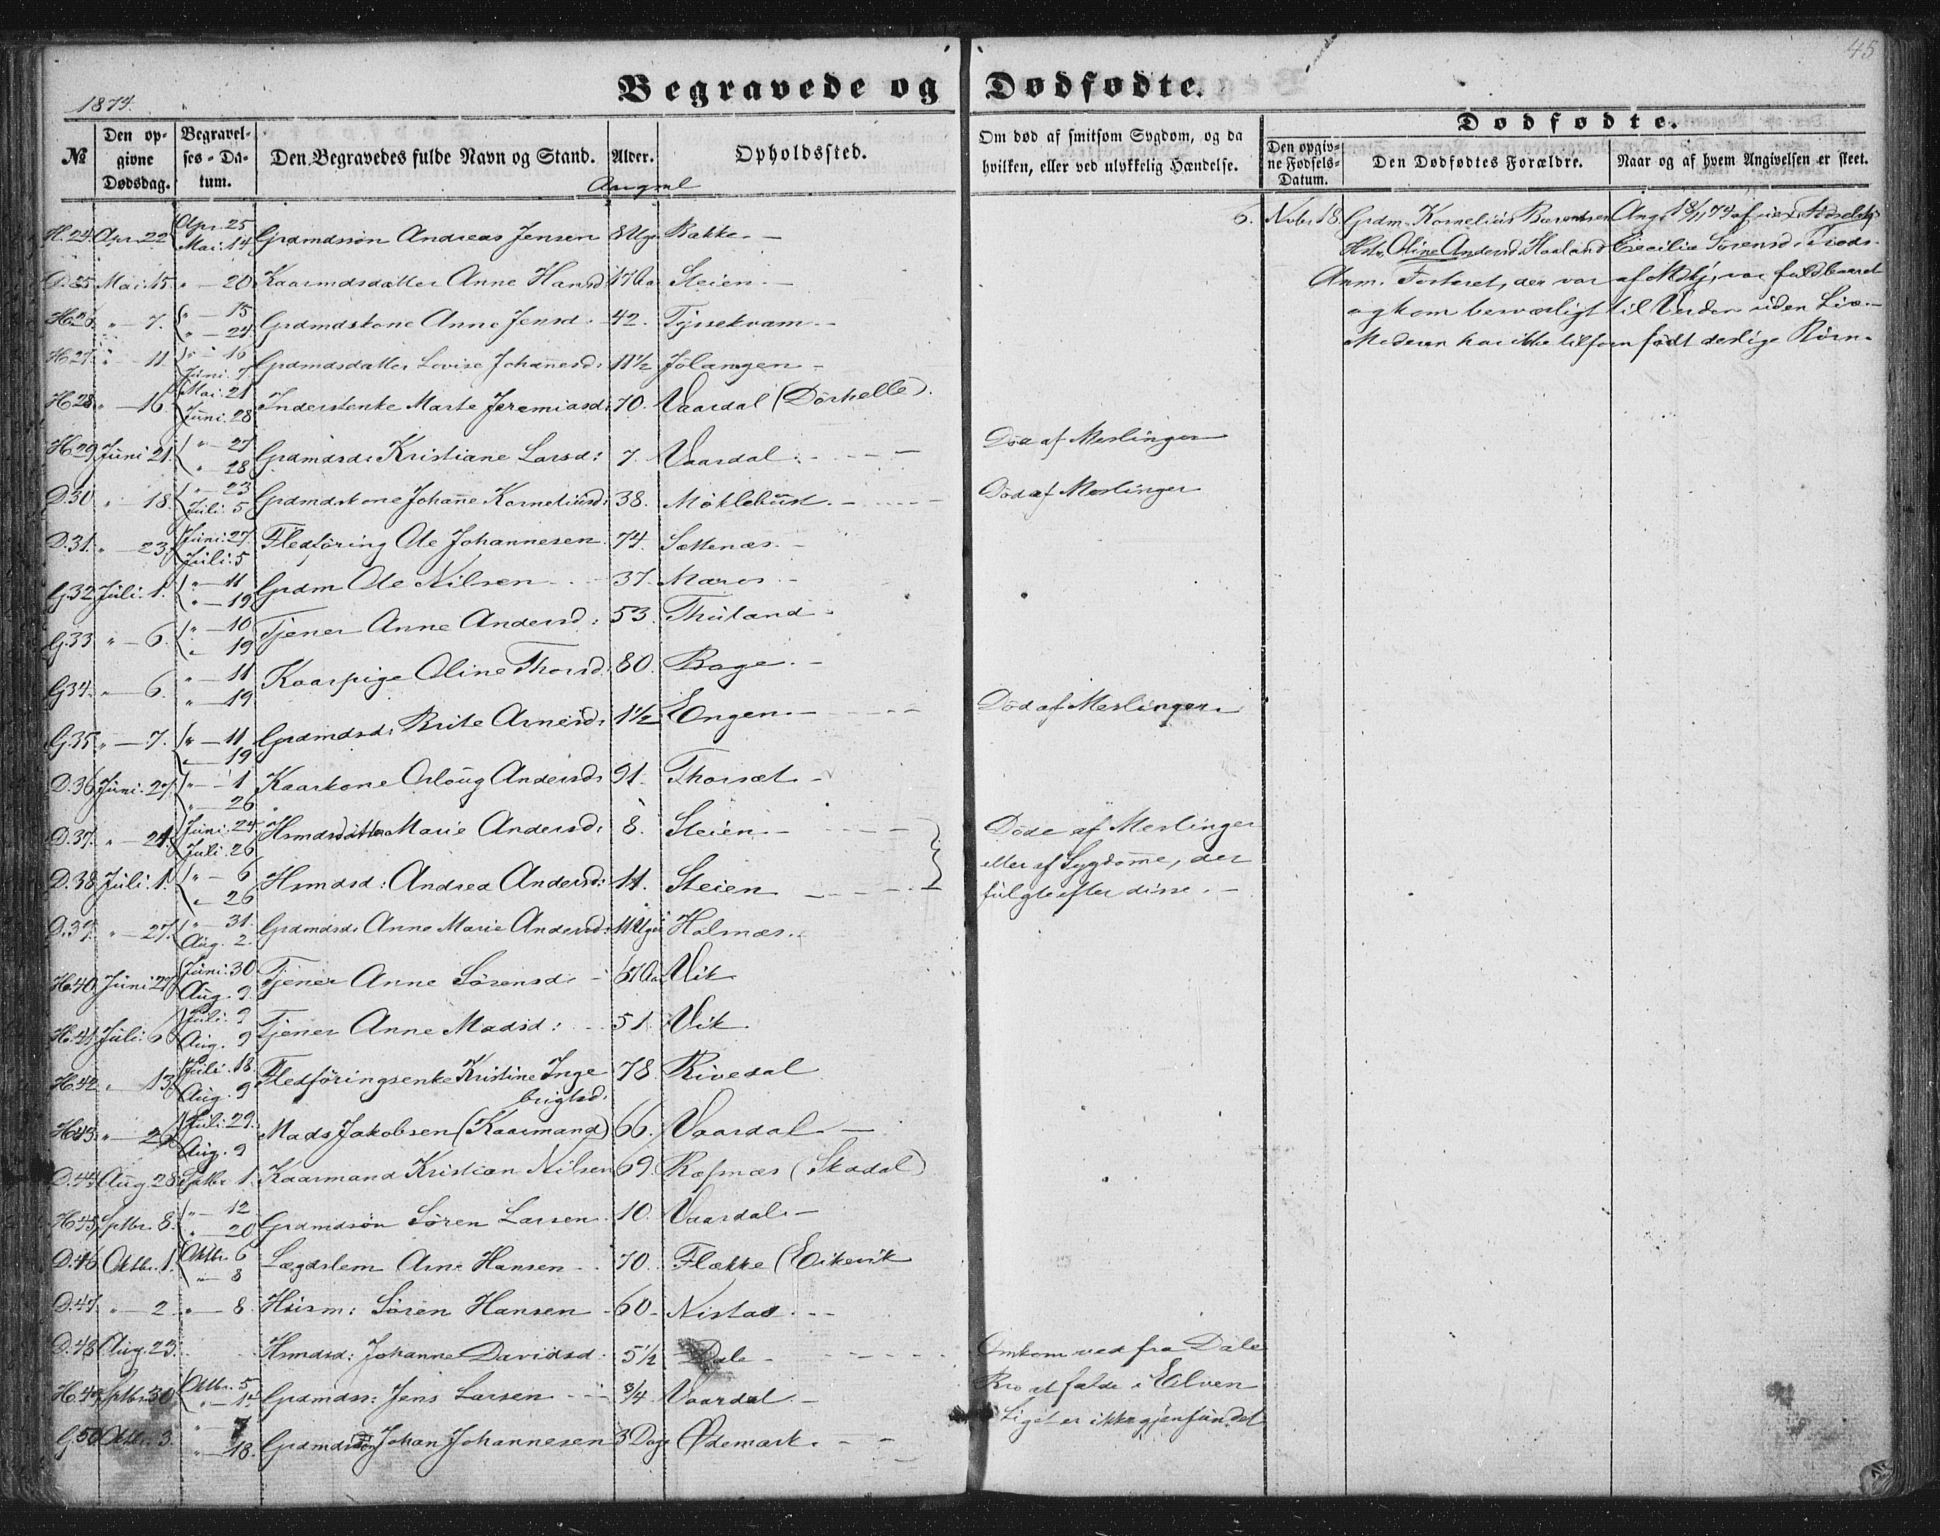 45
1874.
Begravede og Dødfødte.
№
Den opgivne Dødsdag.
Begravelses-Datum.
Den Begravedes fulde Navn og Stand.
Alder.
Opholdssted.
Om død af smitsom Sygdom, og da hvilken, eller ved ulykkelig Hændelse.
Dødfødte.
Den opgivne Fødsels-Datum.
Den Dødfødtes Forældre.
Naar og af hvem Angivelsen er skeet.
H.24. Apr. 22 Apr. 25 Mai. 14 Grdmdssøn Andreas Jensen 8 Uger Bakke
D.25 Mai. 15 " 20 Kaarmdsdatter Anne Hansd 17 Aar Steien
H.26 " 7. " 15 " 24 Grdmdskone Anne Jensd. 42. Tyssekvam
H.27. " 11. " 16 Juni. 7. Grdmdsdatter Lovise Johannesd: 11 1/2 Jolangen
H.28 " 16. Mai. 21 Juni. 28 Inderstenke Marte Jeremiasd: 70. Vaardal (Dørhelle).
H.29. Juni 21. " 27 " 28 Grdmdsd: Kristiane Larsd: 7. Vaardal. Død af Meslinger
D.30 " 18. " 23 Juli. 5 Grdmdskone Johanne Korneliusd: 38. Møklebust. Død af Meslinger
D.31. " 23. Juni. 27. Juli. 5 Fledføring Ole Johannesen 74. Sættenæs.
G.32. Juli. 1. " 11 " 19 Grdm Ole Nilsen 37.
G.33 " 6. " 10 " 19 Tjener Anne Andersd: 53. Thuland
G.34. " 6. " 11 " 19 Kaarpige Oline Thorsd: 80. Bage.
G.35 " 7. " 11 " 19 Grdmdsd: Brite Arnesd: 1 1/2 Engen. Død af Meslinger.
D.36 Juni. 27. " 1 " 26 Kaarkone Andersd: 91. Thorsæt
D.37. " 21. Juni. 24 Juli. 26 Hsmdsdatter Marie Andersd: 8. Steien. Døde af Meslinger
D.38. Juli. 1. " 6 " 26 Hsmdsd: Andrea Andersd: 11. Steien eller af Sygdomme, der
fulgte efter disse.
D.39. " 27. " 31. Aug. 2. Grdmdsd: Anne Marie Andersd: 11 Uger Holmæs.
H.40. Juni 27. Juni. 30 Aug. 9. Tjener Anne Sørensd: 67 Aar Vik
H.41. Juli. 6 Juli. 9 Aug. 9 Tjener Anne Madsd: 51 Vik
H.42. " 13. Juli. 18. Aug. 9 Fledføringsenke Kristine Inge 78. Rivedal
brigtsd.
H.43. " 26 Juli. 29. Aug. 9 Mads Jakobsen (Kaarmand) 66. Vaardal
D.44. Aug 28. Sptbr 1. Kaarmand Kristian Nilsen 69. Ræfnæs (Skadal)
H.45. Sptbr. 8. " 12 " 20 Grdmdsøn Søren Larsen 10. Vaardal
D.46 Oktbr. 1. Oktbr. 6 " 8 Lægdslem Arne Hansen 70. Flække (Eikevik
D.47. " 2 " 8. Husm: Søren Hansen 60. Nistad
D.48 Aug. 23. Hsmdsd: Johanne Davidsd. 5 1/2 Dale Omkom ved fra Dale
H.49. Sptbr. 30. Oktbr. 5 Grdmdss: Jens Larsen 3/4 Vaardal. Bro at falde i Elven
Liget er ikke gjenfundet
G.50. Oktbr. 3. " 7 " 18. Grdmdssøn Johan Johannesen 3 Dage Ødemark.
6. Nvbr. 18. Grdm. Kornelius Berentsen Ang. 18/11 74 af
Hstr. Oline Andersd. Haaland Cecilie Sørensd.
Anm. Fosteret, der var af Mkj, var fuldbaaret
og kom besværligt til Verden uden Liv.
Moderen har ikke tilforn født deslige Børn.